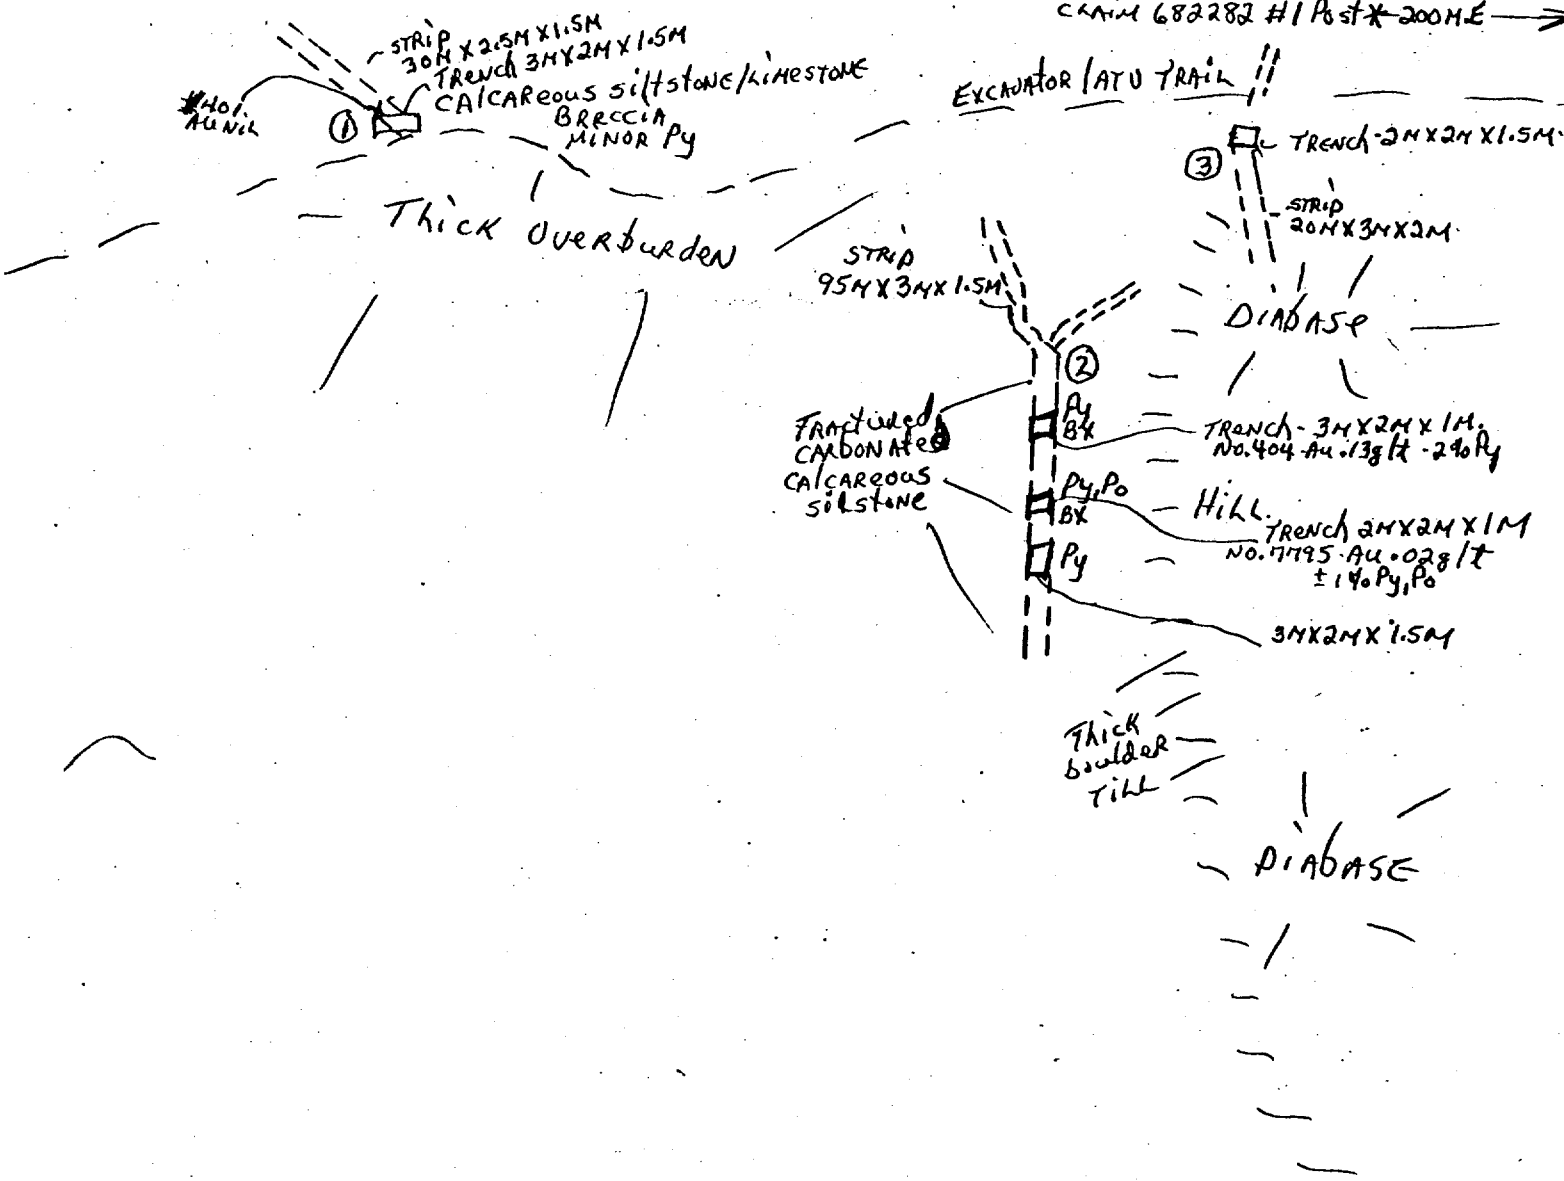 CLAIM 682282 #1 Post * 200M.E
STRIP
30M X 2.5M X 1.5M
TRENCH 3M X 2M X 1.5M
CALCAREOUS SILTSTONE/LIMESTONE
BRECCIA
MINOR Py
#401
AU NIL
1
EXCAVATOR/ATV TRAIL
TRENCH-2M X 2M X 1.5M.
3
STRIP
20M X 3M X 2M.
Thick Overburden
STRIP
95M X 3M X 1.5M
DIABASE
2
FRACTURED
CARBONATE
CALCAREOUS
SILSTONE
Py
BX
TRENCH - 3M X 2M X 1M.
No.404-Au.13g/t-2%Py
Py,Po
BX
HILL.
TRENCH 2M X 2M X 1M
No.7795-Au.02g/t
±1%Py,Po
Py
3M X 2M X 1.5M
Thick
boulder
TILL
DIABASE